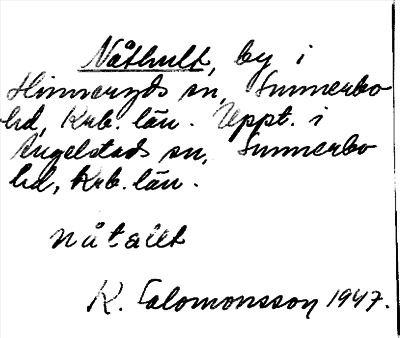 Nåthult, by i
Hinneryds sn, Sunnerbo
hd, Krb. län. Uppt. i
Angelstads sn, Sunnerbo
hd, Krb. län.
nåtallt
R. Salomonsson 1947.